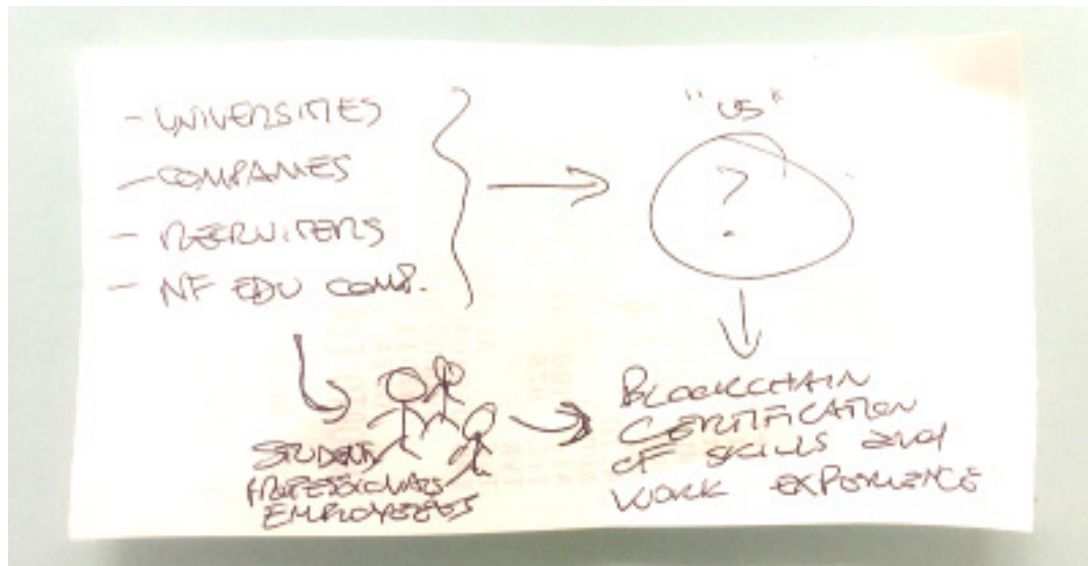 - UNIVERSITIES
- COMPANIES
- RECRUITERS
- NF EDU COMP.
"US"
?
STUDENTS
PROFESSIONALS
EMPLOYEES
BLOCKCHAIN
CERTIFICATION
OF SKILLS and
WORK EXPERIENCE